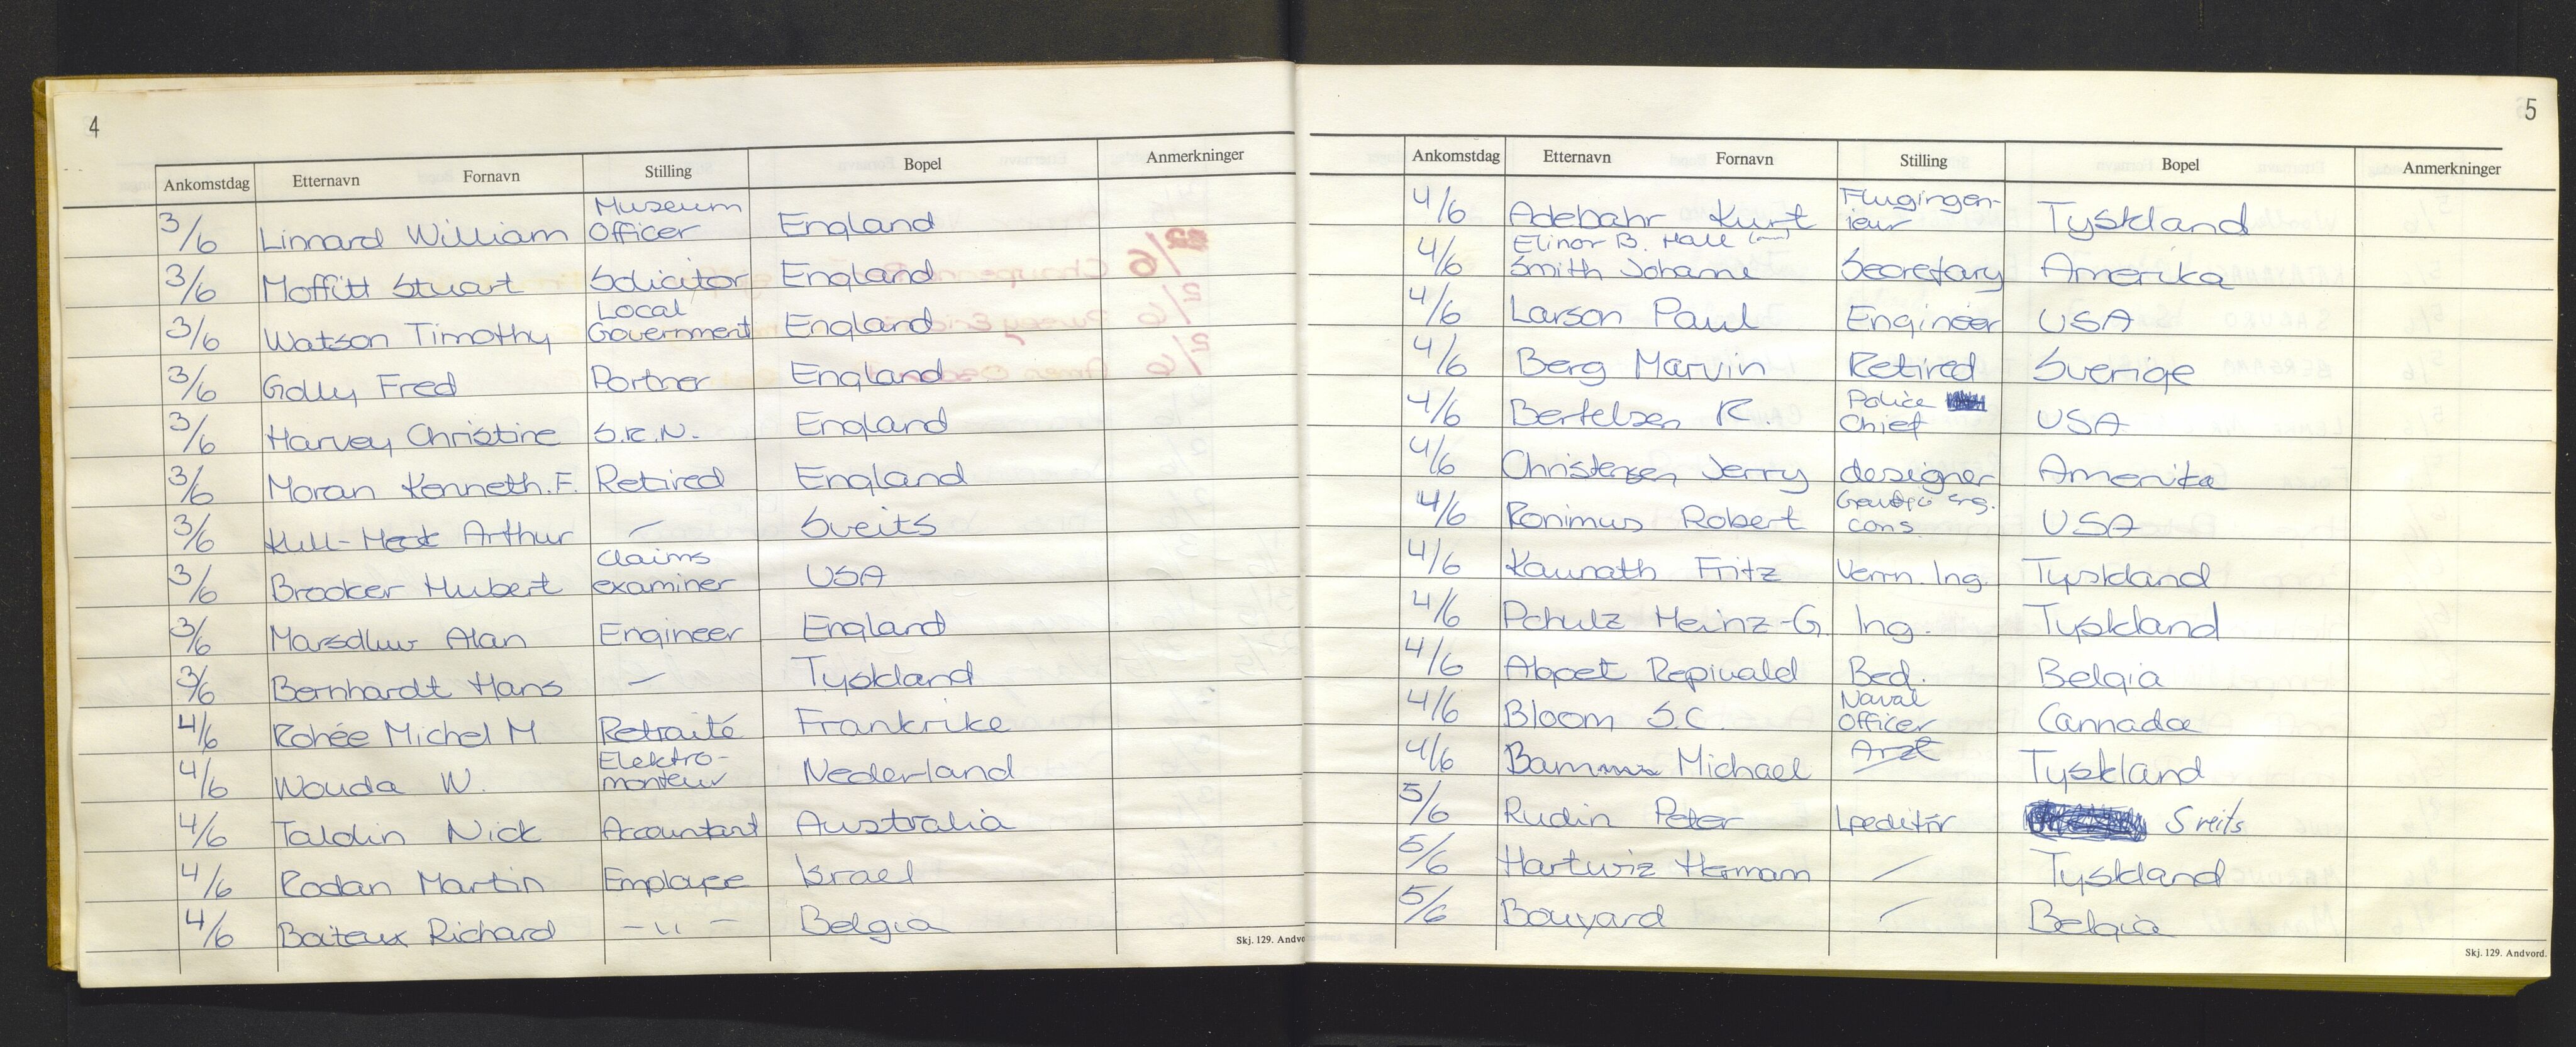 4
Ankomstdag Etternavn Fornavn Stilling Bopel Anmerkninger
3/6 Linnard William Museum Officer England
3/6 Moffitt Stuart Solicitor England
3/6 Watson Timothy Local Government England
3/6 Golly Fred Portner England
3/6 Harvey Christine S.R.N. England
3/6 Moran Kenneth.F. Retired England
3/6 Kull-Heck Arthur — Sveits
3/6 Brooker Hubert Claims examiner USA
3/6 Alan Engineer England
3/6 Bernhardt Hans — Tyskland
4/6 Rohée Michel M Retraité Frankrike
4/6 Wouda W. Elektro-monteur Nederland
4/6 Taldin Nick Accountant Australia
4/6 Rodan Martin Employee Israel
4/6 Boiteux Richard —"— Belgia
Skj. 129. Andvo
5
Ankomstdag Etternavn Fornavn Stilling Bopel Anmerkninger
4/6 Adebahr Kurt Flugingen-ieur Tyskland
4/6 Elinor B. Hall Smith Johanne Secretary Amerika
4/6 Larson Paul Engineer USA
4/6 Berg Marvin Retired Sverige
4/6 Bertelsen R. Police Chief USA
4/6 Christensen Jerry designer Amerika
4/6 Ronimus Robert eng. cons. USA
4/6 Kaurath Fritz Verm. Ing. Tyskland
4/6 Pchulz Heinz-G. Ing. Tyskland
4/6 Abpet Repivald Bed. Belgia
4/6 Bloom S.C. Naval Officer Cannada
4/6 Michael Arzt Tyskland
5/6 Rudin Peter Speditör Sveits
5/6 Hartwiz Herman — Tyskland
5/6 Bouyard — Belgia
Skj. 129. Andvord.